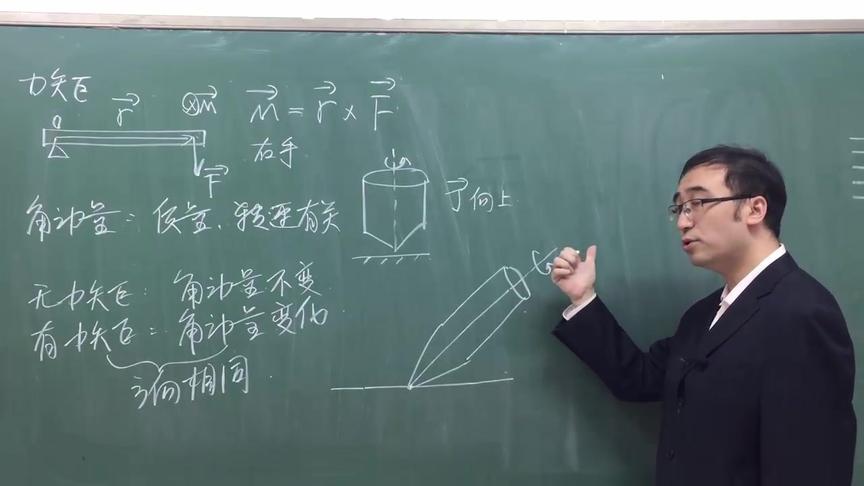 力矩
O r⃗ ⊗M⃗ M⃗ = r⃗ × F⃗
F⃗
右手
J⃗向上
角动量：质量、转速有关
无力矩：角动量不变
有力矩：角动量变化
方向相同.